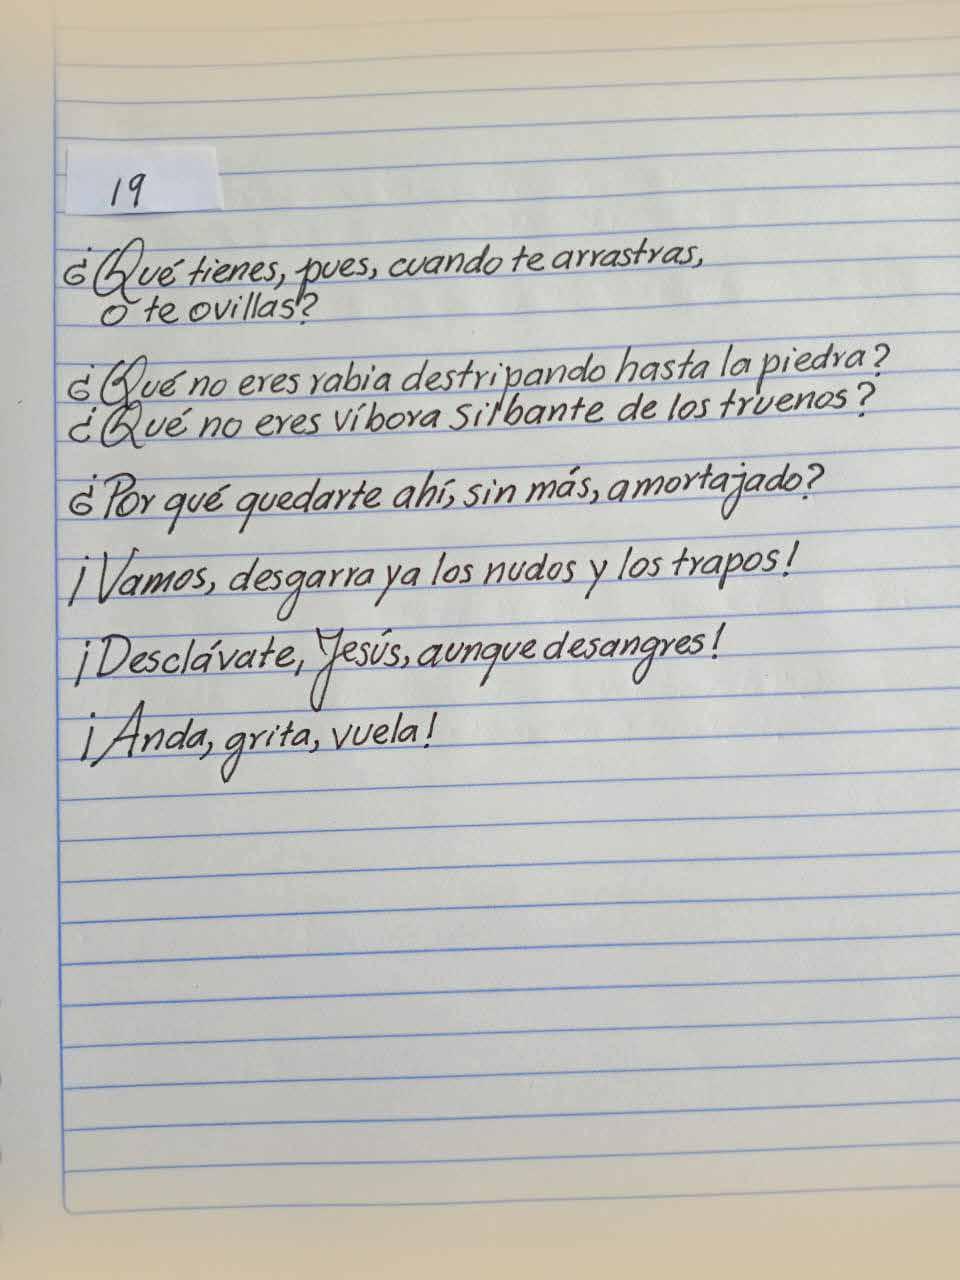 19
¿Qué tienes, pues, cuando te arrastras,
o te ovillas?
¿Qué no eres rabia destripando hasta la piedra?
¿Qué no eres víbora silbante de los truenos?
¿Por qué quedarte ahí, sin más, amortajado?
¡Vamos, desgarra ya los nudos y los trapos!
¡Desclávate, Jesús, aunque desangres!
¡Anda, grita, vuela!